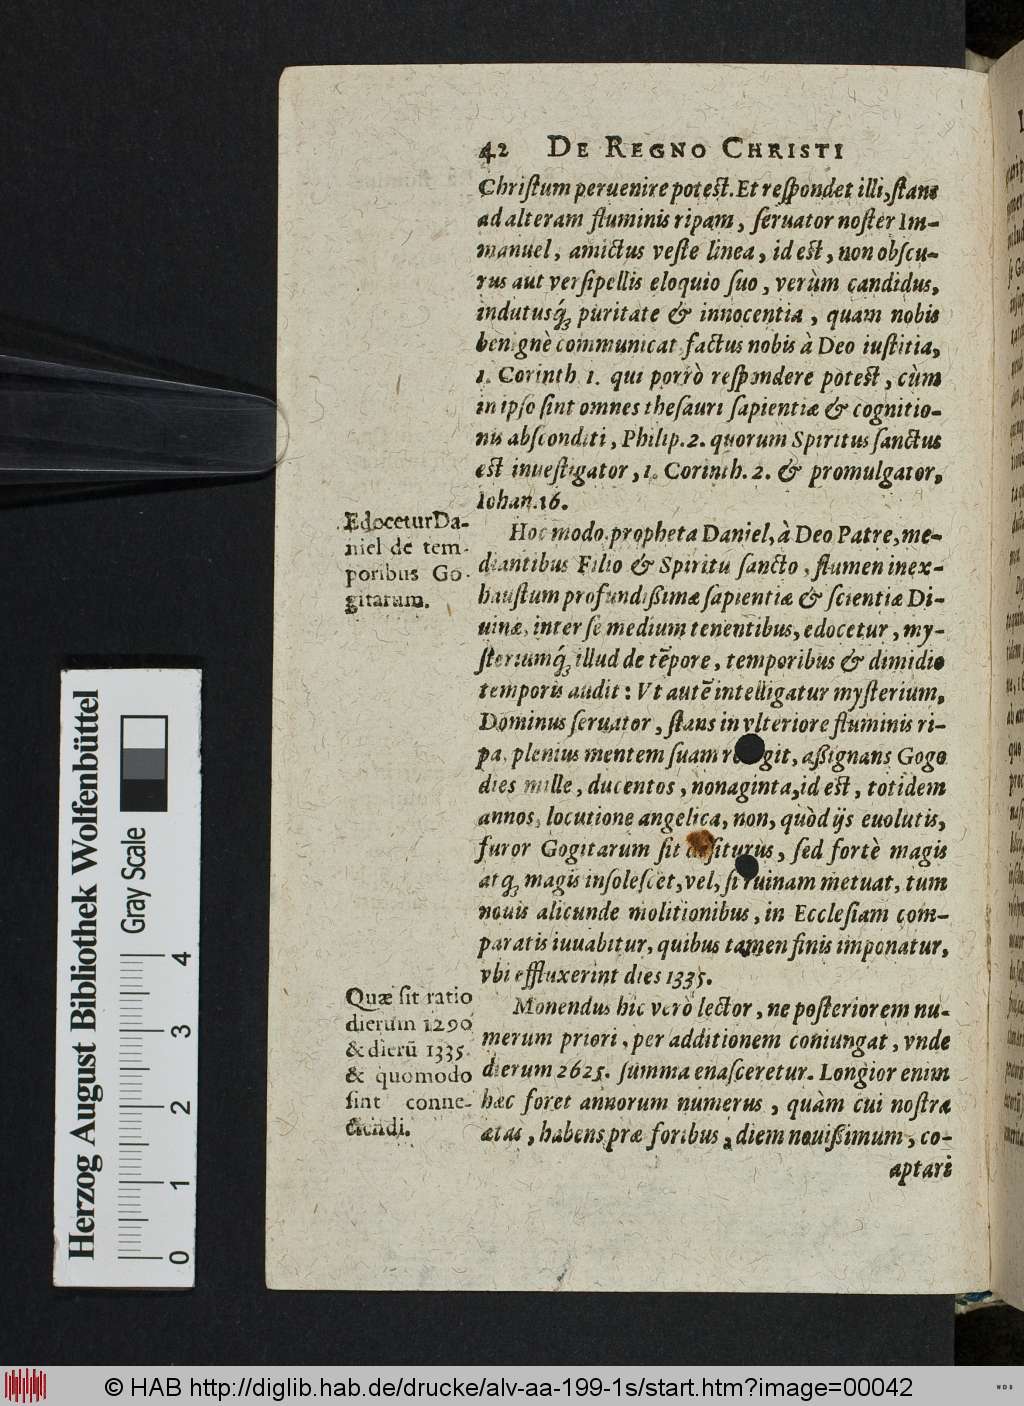 42 DE REGNO CHRISTI
Chriſtum peruenire poteſt. Et reſpondet illi, ſtans
ad alteram fluminis ripam, ſeruator noſter Im-
manuel, amictus veſte linea, id eſt, non obſcu-
rus aut verſipellis eloquio ſuo, verùm candidus,
indutusq́ꝫ puritate & innocentia, quam nobis
benignè communicat factus nobis à Deo iuſtitia,
1. Corinth 1. qui porrò reſpondere poteſt, cùm
in ipſo ſint omnes theſauri ſapientiæ & cognitio-
nis abſconditi, Philip. 2. quorum Spiritus ſanctus
eſt inueſtigator, 1. Corinth. 2. & promulgator,
Iohan. 16.
Edocetur Da-
niel de tem-
poribus Go-
gitarum.
Hoc modo propheta Daniel, à Deo Patre, me-
diantibus Filio & Spiritu ſancto, flumen inex-
hauſtum profundißimæ ſapientiæ & ſcientiæ Di-
uinæ, inter ſe medium tenentibus, edocetur, my-
ſteriumq́ꝫ illud de tẽpore, temporibus & dimidio
temporis audit: Vt autẽ intelligatur myſterium,
Dominus ſeruator, ſtans in vlteriore fluminis ri-
pa, plenius mentem ſuam git, aßignans Gogo
dies mille, ducentos, nonaginta, id eſt, totidem
annos, locutione angelica, non, quòd ijs euolutis,
furor Gogitarum ſit deſiturus, ſed fortè magis
atqꝫ magis inſoleſcet, vel, ſi ruinam metuat, tum
nouis alicunde molitionibus, in Eccleſiam com-
paratis iuuabitur, quibus tamen finis imponatur,
vbi effluxerint dies 1335.
Quæ ſit ratio
dierum 1290
& dierũ 1335.
& quomodo
ſint conne-
ctendi.
Monendus hic verò lector, ne poſteriorem nu-
merum priori, per additionem coniungat, vnde
dierum 2625. ſumma enaſceretur. Longior enim
hæc foret annorum numerus, quàm cui noſtra
ætas, habens præ foribus, diem nouißimum, co-
aptari
Herzog August Bibliothek Wolfenbüttel
Gray Scale
0 1 2 3 4
© HAB http://diglib.hab.de/drucke/alv-aa-199-1s/start.htm?image=00042